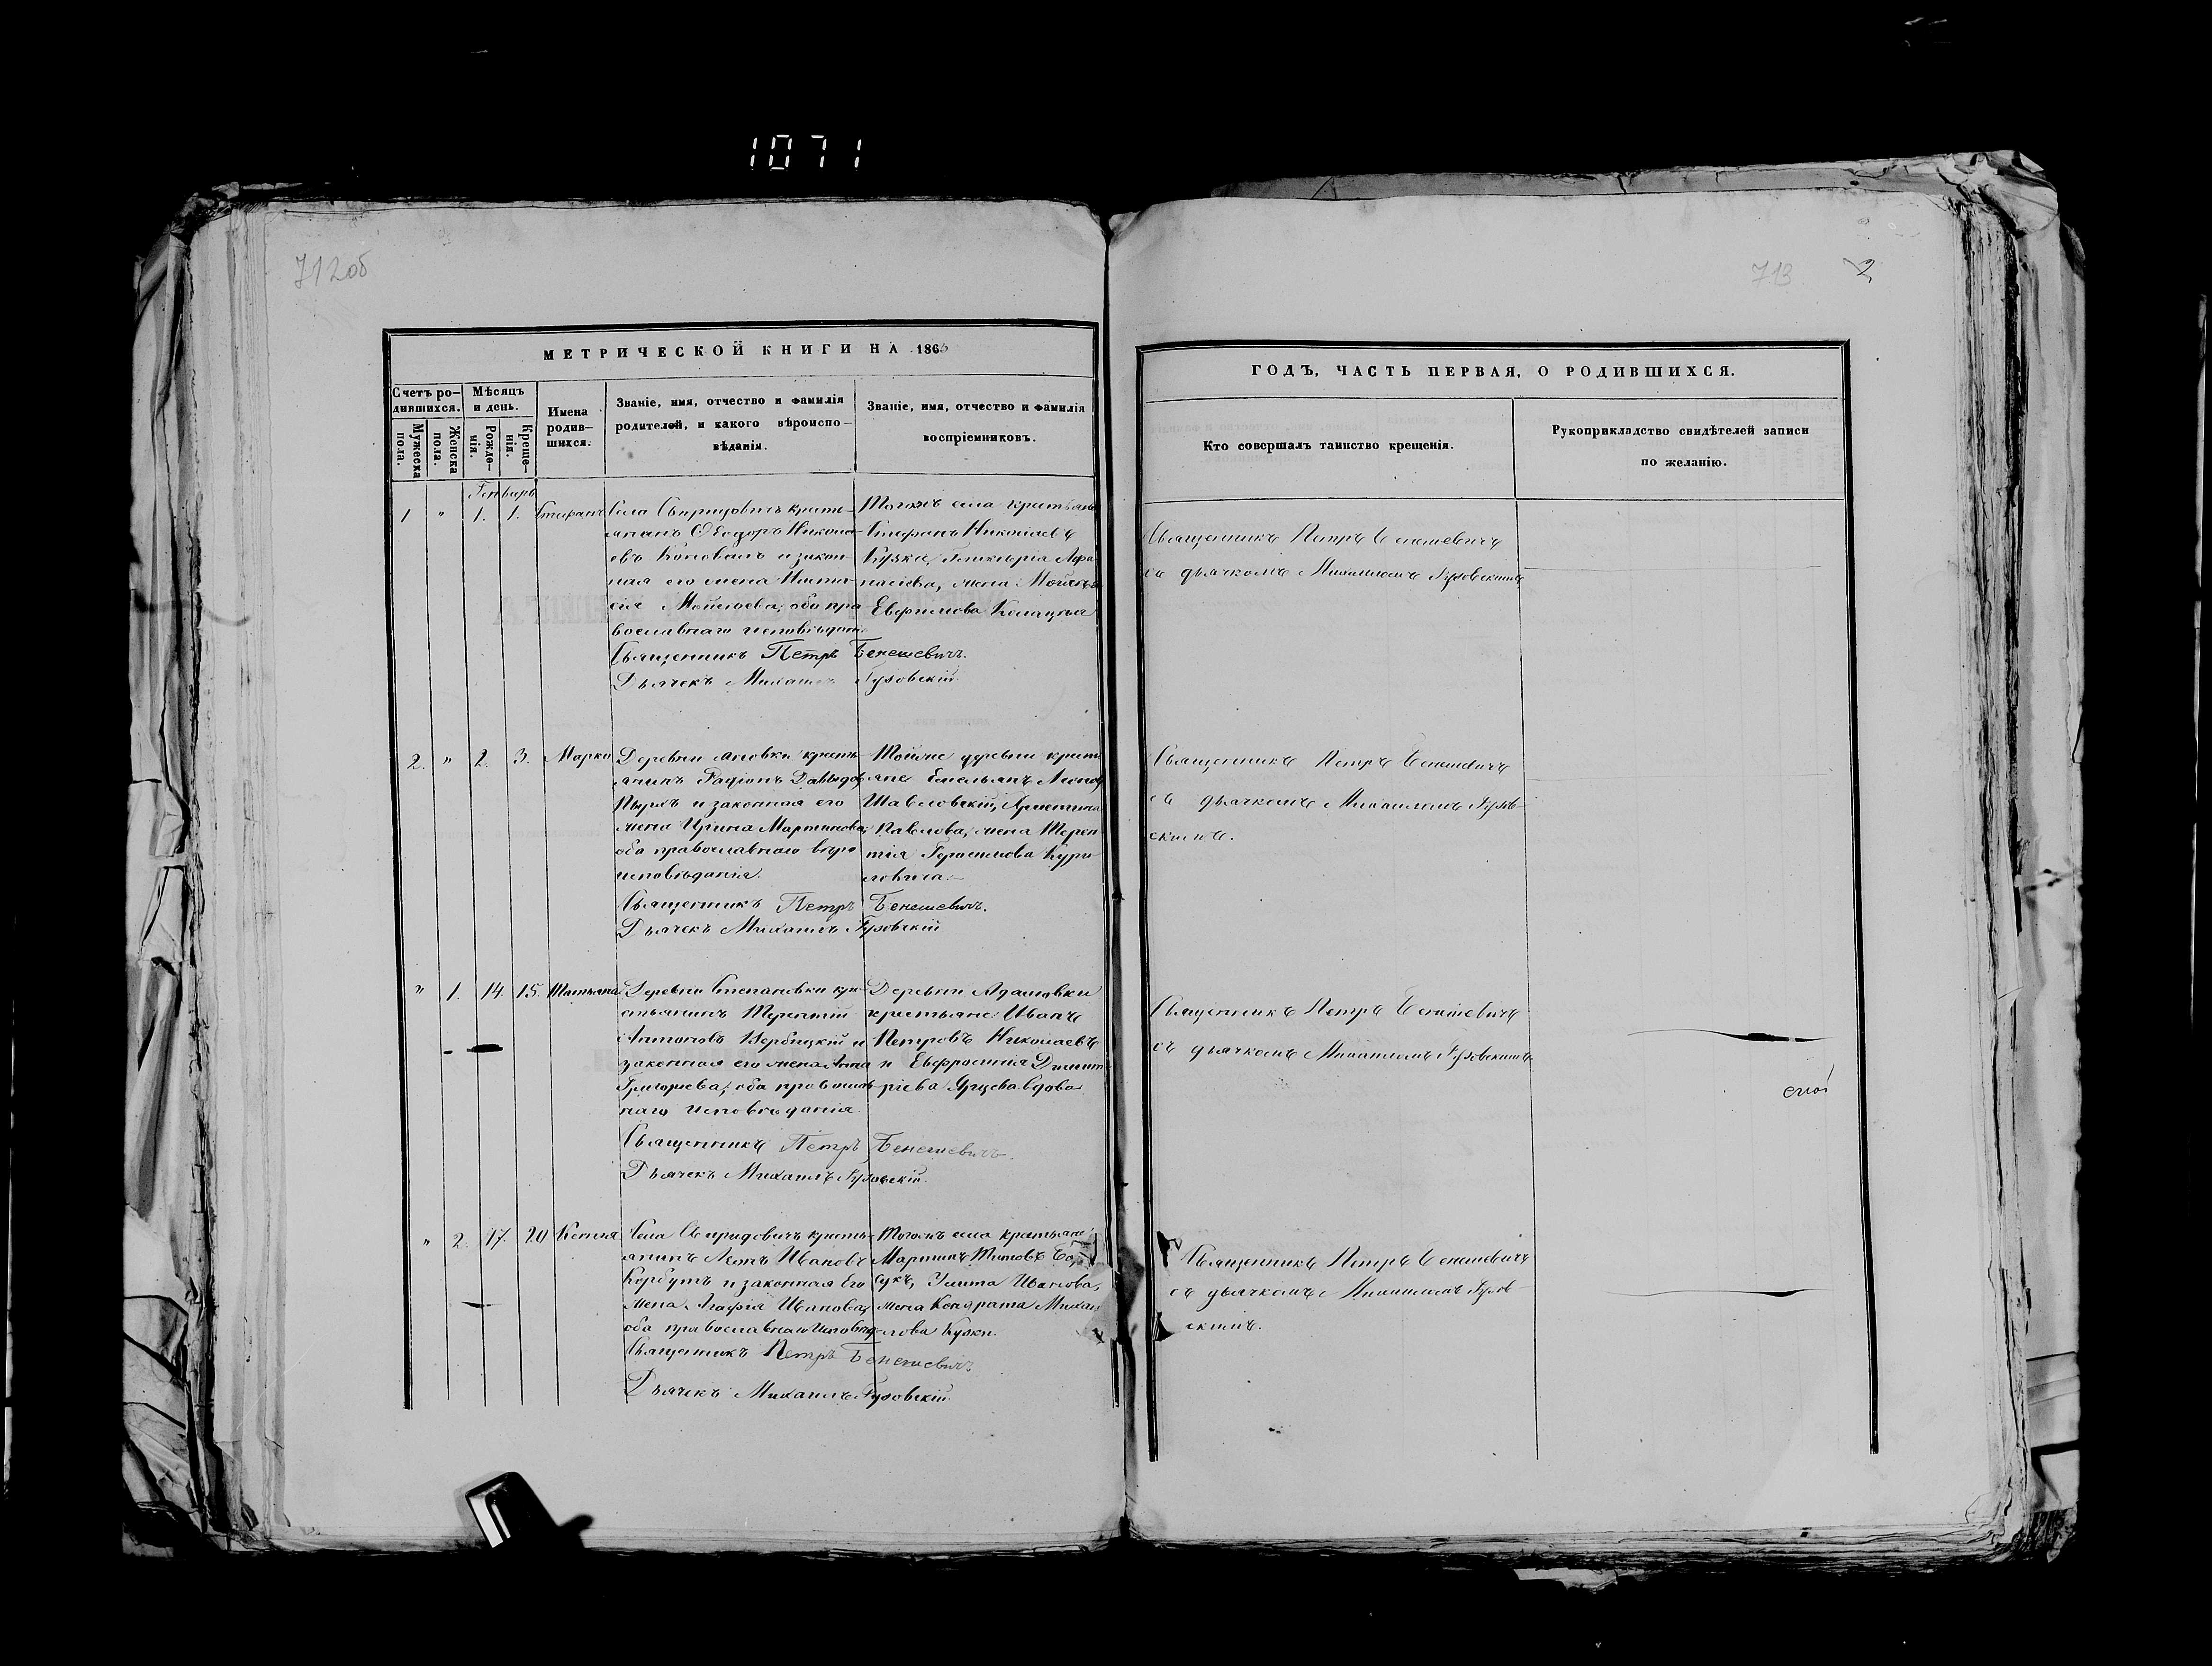 1071
712об
713
2
МЕТРИЧЕСКОЙ КНИГИ НА 1866
Счетъ ро-
дившихся.
Мужеска
пола.
Женска
пола.
Мѣсяцъ
и день.
Рожде-
нія.
Креще-
нія.
Имена
родив-
шихся.
Званіе, имя, отчество и фамилія
родителей, и какого вѣроиспо-
вѣданія.
Званіе, имя, отчество и фамилія
воспріемниковъ.
ГОДЪ, ЧАСТЬ ПЕРВАЯ, О РОДИВШИХСЯ.
Кто совершалъ таинство крещенія.
Рукоприкладство свидѣтелей записи
по желанію.
Генварь
1 " 1. 1. Стефанъ
Села Свиридовичъ кресть-
янинъ Ѳеодоръ Никола-
евъ Коновалъ и закон-
ная его жена
Моисеева, оба пра
вославнаго исповѣдан.
Священникъ Петръ Бенешевичъ.
Дьячекъ Михаилъ Гузовскій
Тогожъ села крестьяне
Стефанъ Николаевъ
Кузка, Гликерія Афа
насіева, жена Моисея
Евфимова
Священникъ Петръ Бенешевичъ
съ дьячкомъ Михаиломъ Гузовскимъ
2. " 2. 3. Марко
Деревни кресть-
янинъ Радіонъ Давыдов
и законная его
жена Ирина Мартинова;
оба православнаго вѣро
исповѣданія.
Священникъ Петръ Бенешевичъ.
Дьячекъ Михаилъ Гузовскій
Тойже деревни кресть
яне Емельянъ
Павлова, жена Терен
тія Герасимова Кури
ловича.
Священникъ Петръ Бенешевичъ
съ дьячкомъ Михаиломъ Гузов-
скимъ.
" 1. 14. 15. Татьяна
Деревни Степановки кре-
стьянинъ Терентій
Антоновъ Вербицкій и
законная его жена Анна
Григорьева, оба православ
наго исповѣданія.
Священникъ Петръ Бенешевичъ.
Дьячекъ Михаилъ Гузовскій.
Деревни Адамовки
крестьяне Иванъ
Петровъ Николаевъ
и Евфросинія Димит
ріева вдова
Священникъ Петръ Бенешевичъ
съ дьячкомъ Михаиломъ Гузовскимъ
" 2. 17. 20 Ксенія
Села Свиридовичъ кресть-
янинъ Леонъ Ивановъ
Корбутъ и законная его
жена Агафія Иванова,
оба православнаго исповѣд
Священникъ Петръ Бенешевичъ
Дьячекъ Михаилъ Гузовскій.
Тогожъ села крестьяне
Мартинъ Титовъ
Улита Иванова,
жена Кондрата Михаи
лова Кузки.
Священникъ Петръ Бенешевичъ
съ дьячкомъ Михаиломъ Гузов-
скимъ.